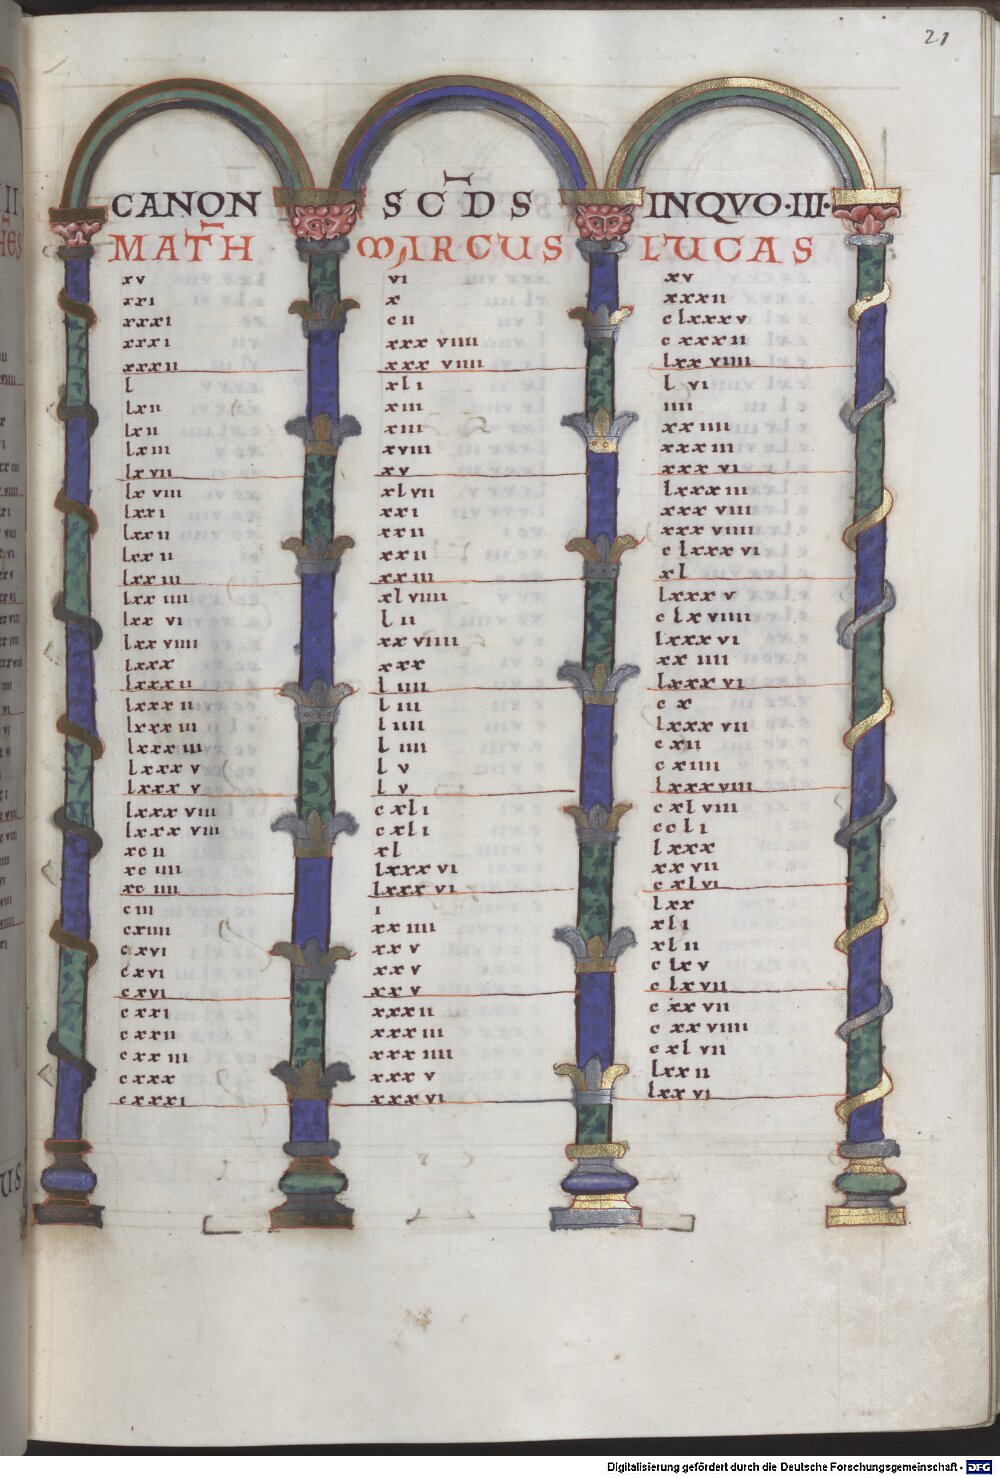 21
CANON SCDS INQVO·III·
MATH MARCUS LUCAS
xv vi xv
xxi x xxxii
xxxi cii clxxxv
xxxi xxxviiii cxxxii
xxxii xxxviiii lxxviiii
l xli lvi
lxii xiii iiii
lxii xiii xxiiii
lxiii xviii xxxiii
lxvii xv xxxvi
lxviii xlvii lxxxiii
lxxi xxi xxxviii
lxxii xxii xxxviiii
lxxii xxii clxxxvi
lxxiii xxiii xl
lxxiiii xlviiii lxxxv
lxxvi lii clxviiii
lxxviiii xxviiii lxxxvi
lxxx xxx xxiiii
lxxxii liiii lxxxvi
lxxxii liii cx
lxxxiii liiii lxxxvii
lxxxiii liiii cxii
lxxxv lv cxiiii
lxxxv lv lxxxviii
lxxxviii cxli cxlviii
lxxxviii cxli ccli
xcii xl lxxx
xciiii lxxxvi xxvii
xciiii lxxxvi cxlvi
ciii i lxx
cxiiii xxiiii xli
cxvi xxv xlii
cxvi xxv clxv
cxvi xxv clxvii
cxxi xxxii cxxvii
cxxii xxxiii cxxviiii
cxxiii xxxiiii cxlvii
cxxx xxxv lxxii
cxxxi xxxvi lxxvi
Digitalisierung gefördert durch die Deutsche Forschungsgemeinschaft - DFG